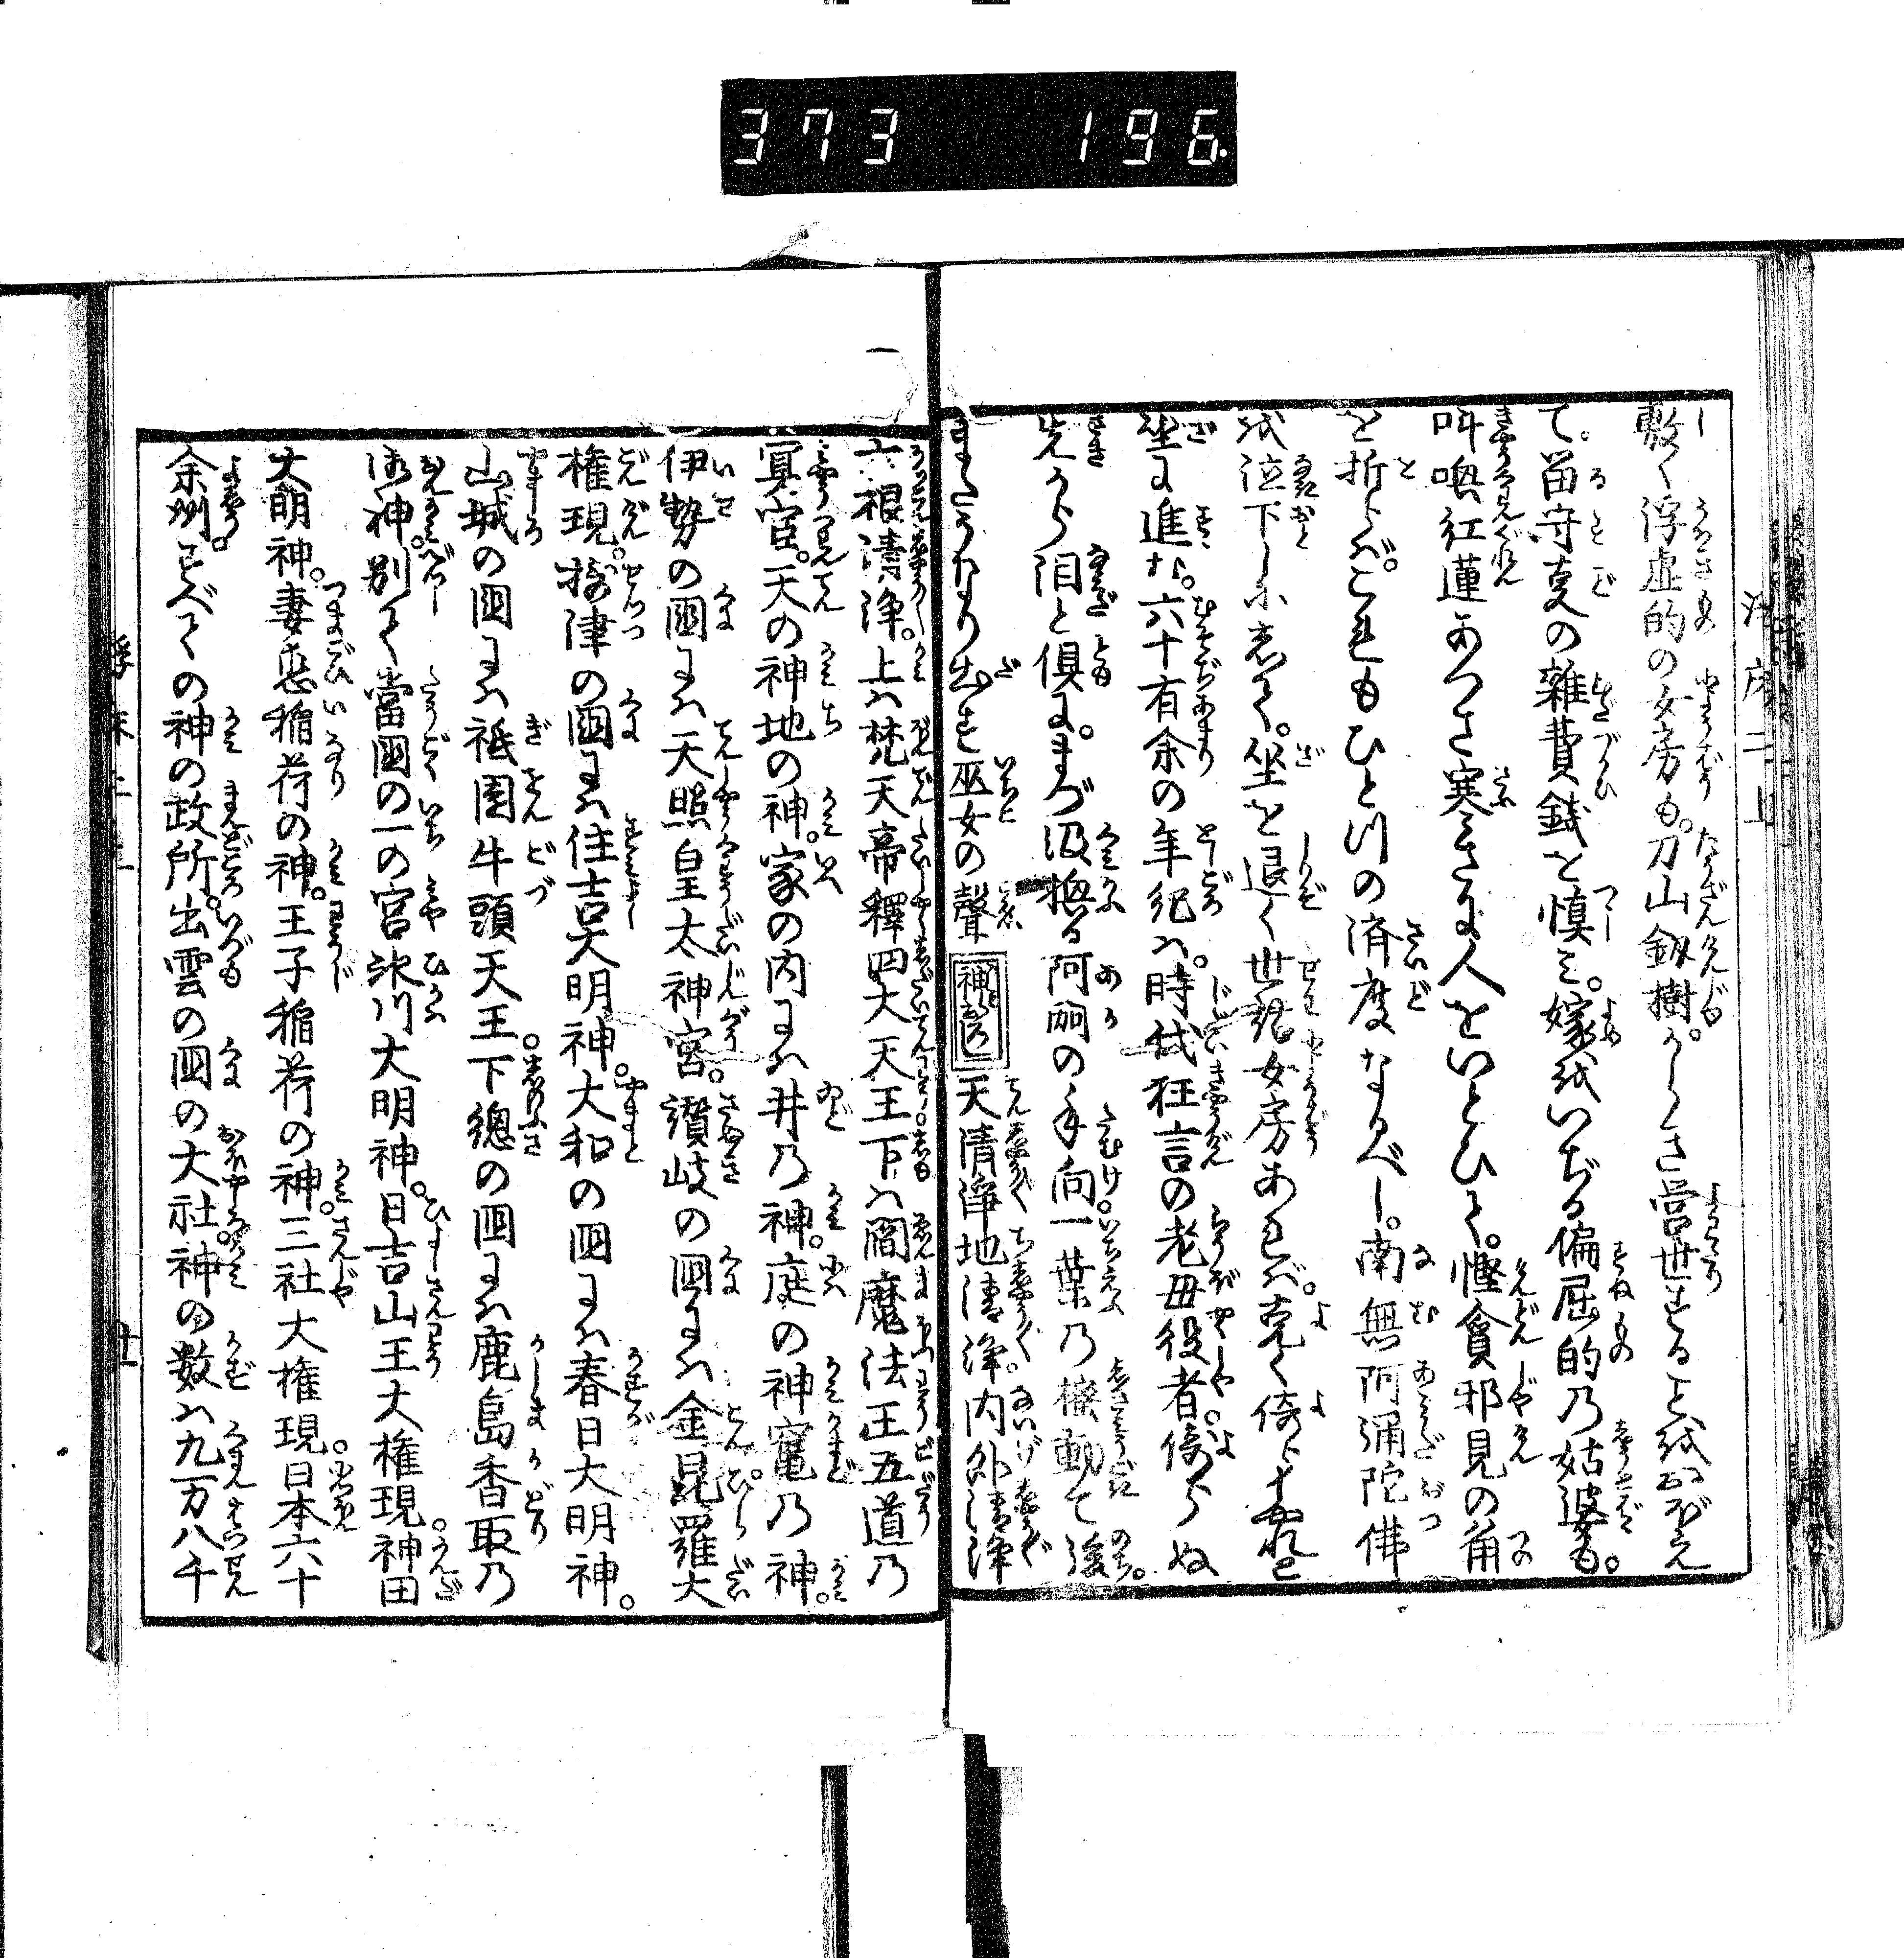 373 196
敷く浮虚的の女房も。刀山釼樹。からき営世することをおぼえ
て。留守居の雑費銭を慎み。嫁をいぢる偏屈的の姑婆も。
叫喚紅蓮あつさ寒さに人をいとひて。慳貪邪見の角
を折らば。これもひとつの済度なるべし。南無阿弥陀佛
を泣下しにきて。坐を退く世話女房あれば。克く倚ど
坐に進む。六十有余の年紀は。時代狂言の老母役者。倚らぬ
先から泪と倶に。まづ汲換る阿伽の手向一葉の檄動て後
またうけなり出す巫女の聲
神おろし
天清浄地清浄。内外清浄
六根清浄。上は梵天帝釋四大天王。下は閻魔法王五道の
冥官。天の神地の神。家の内には井の神。庭の神竈の神。
伊勢の國には天照皇太神宮。讃岐の國には金毘羅大
権現。摂津の國には住吉大明神。大和の国には春日大明神。
山城の国には祇園牛頭天王。下總の国には鹿島香取の
御神。別て當国の一の宮氷川大明神。日吉山王大権現。神田
大明神。妻恋稲荷の神。王子稲荷の神。三社大権現。日本六十
余州。すべての神の政所。出雲の国の大社。神の数は九万八千